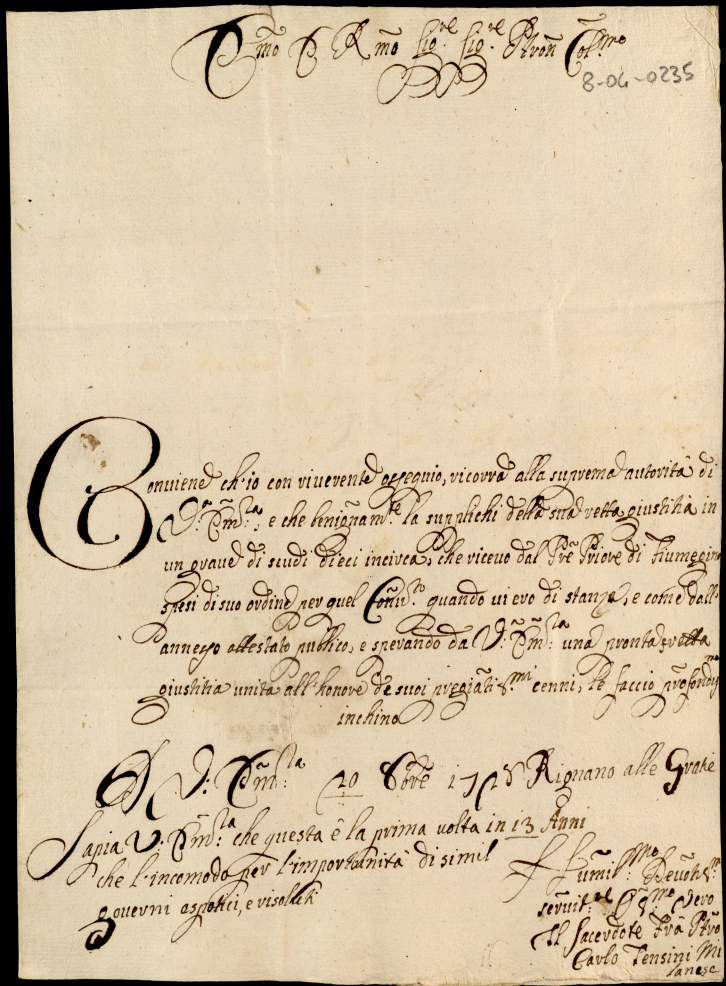 Em̃o E Rm̃o Sig.re Sig.re Pñron Col.mo
8-04-0235
Conviene ch'io con riverente ossequio, ricorra alla suprema autorità di
V.a Em̃.za, e che benignam.te la supplichi della sua retta giustitia in
un grave di scudi dieci incirca, che ricevo dal Prẽ Priore di Fiumegino
spesi di suo ordine per quel Conṽ.to quando vi ero di stanza, e come dall'
annesso attestato publico, e sperando da V: Em̃:za una pronta, e retta
giustitia unita all'honore de suoi pregiatiss.mi cenni, le faccio profondiss.mo
inchino
D V: Em̃:za 20 8bre 1715 Rignano alle Gratie
Sapia V: Em̃:za che questa è la prima volta in 13 Anni
che l'incomodo per l'importunità di simil
governi aspotici, e risoluti
Humil.mo Devotiss.
servit.re Oss.mo vero
Il Sacerdote Frã Ptro
Carlo Tensini Mi
lanese